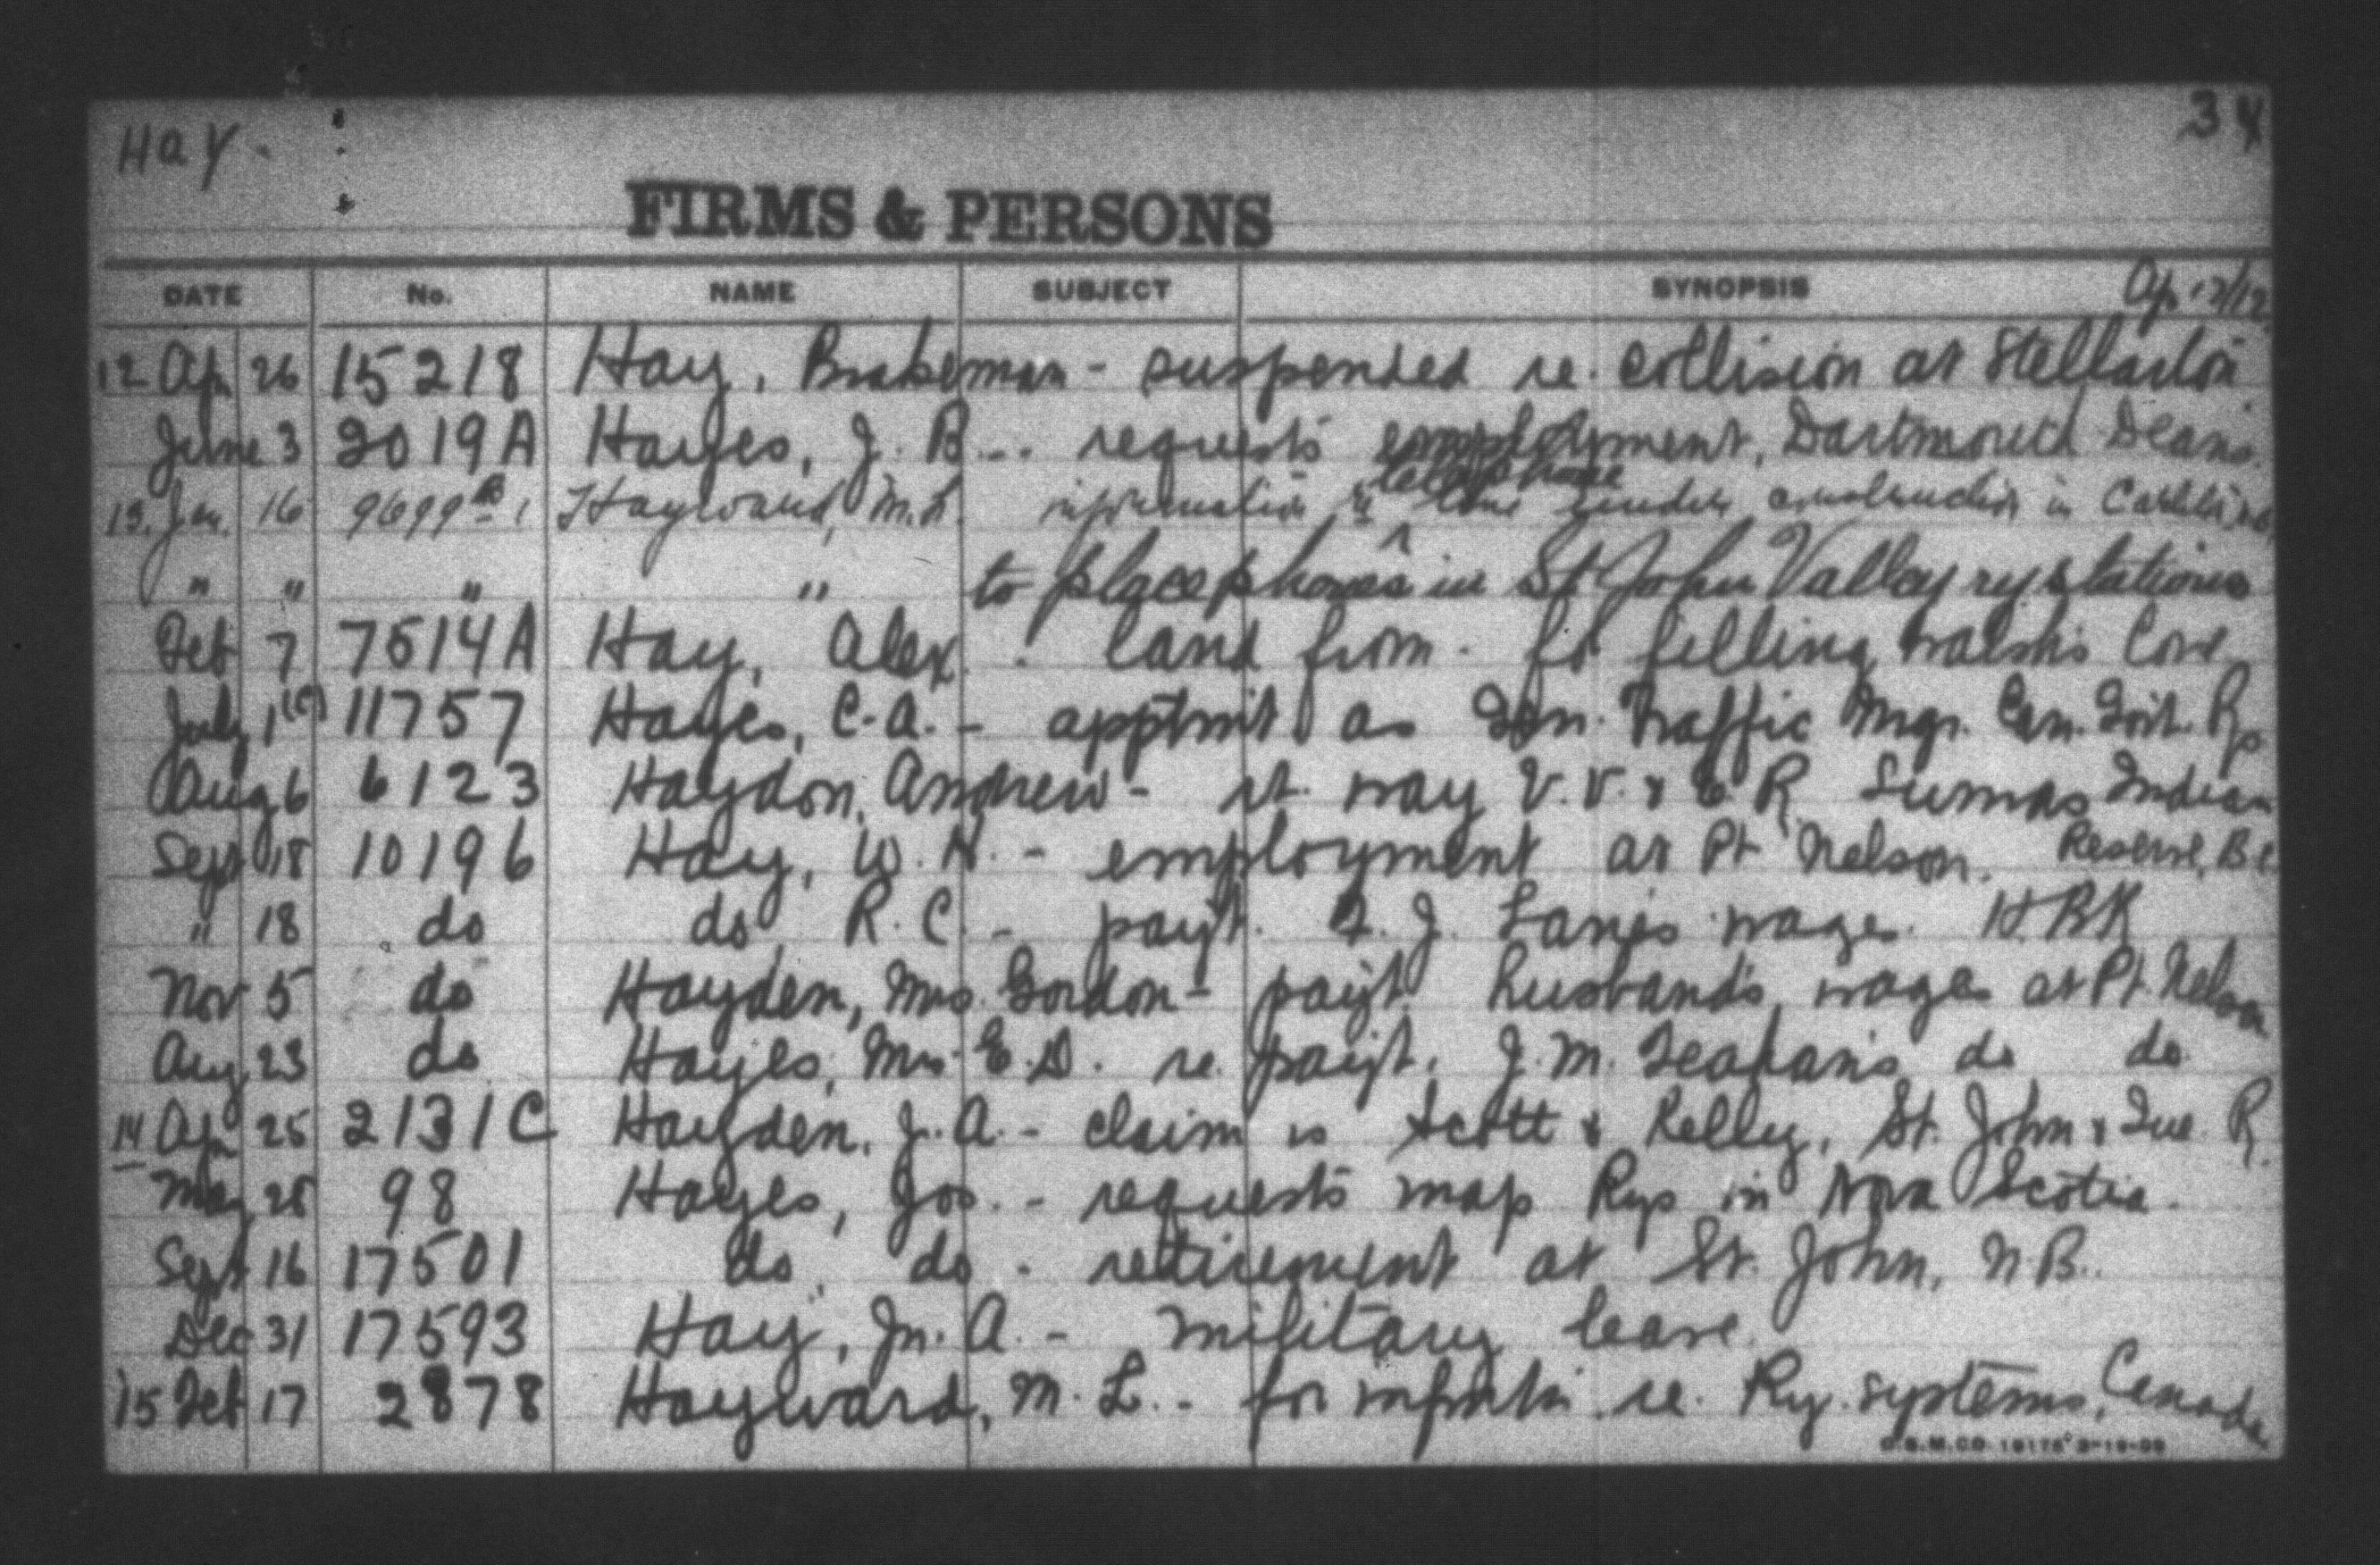 Hay. 34
FIRMS & PERSONS
DATE No. NAME SUBJECT SYNOPSIS Ap 12/12
12 Ap 26 15218 Hay, Brakeman - suspended re. collision at Stellarton
June 3 2019A Hayes, J. B. - requests employment, Dartmouth Deans.
telephone
13. Jan. 16 9699 Hayward, M. L. information re line under construction in
" " " " to place phones in St John Valley ry stations
Feb 7 7514A Hay, Alex. land from - for filling Cove
July 1 11757 Hayes, C. A. - apptmt as Gen. Traffic Mgr. Can. Govt. Rys
Aug 6 6123 Haydon, Andrew - rt. way V. V. & E. R. Sumas Indian
Sept 18 10196 Hay, W. H. - employment at Pt Nelson. Reserve, B.C.
" 18 do do R. C. - payt. wages. H.B.R
Nov 5 do Hayden, Mrs. Gordon - payt. husband's wages at Pt. Nelson
Aug 23 do Hayes, Mrs E. D. re. payt. J. M. do do
14 Ap 25 2131C Hayden, J. A. - claim vs Scott & Kelly, St. John & Que. R.
May 28 98 Hayes, Jos. - requests map Rys in Nova Scotia.
Sept 16 17501 do, do - retirement at St. John, N. B.
Dec 31 17593 Hay, Jn. A. - military leave.
15 Feb 17 2878 Hayward, M. L. - for infmtn re. Ry. systems, Canada